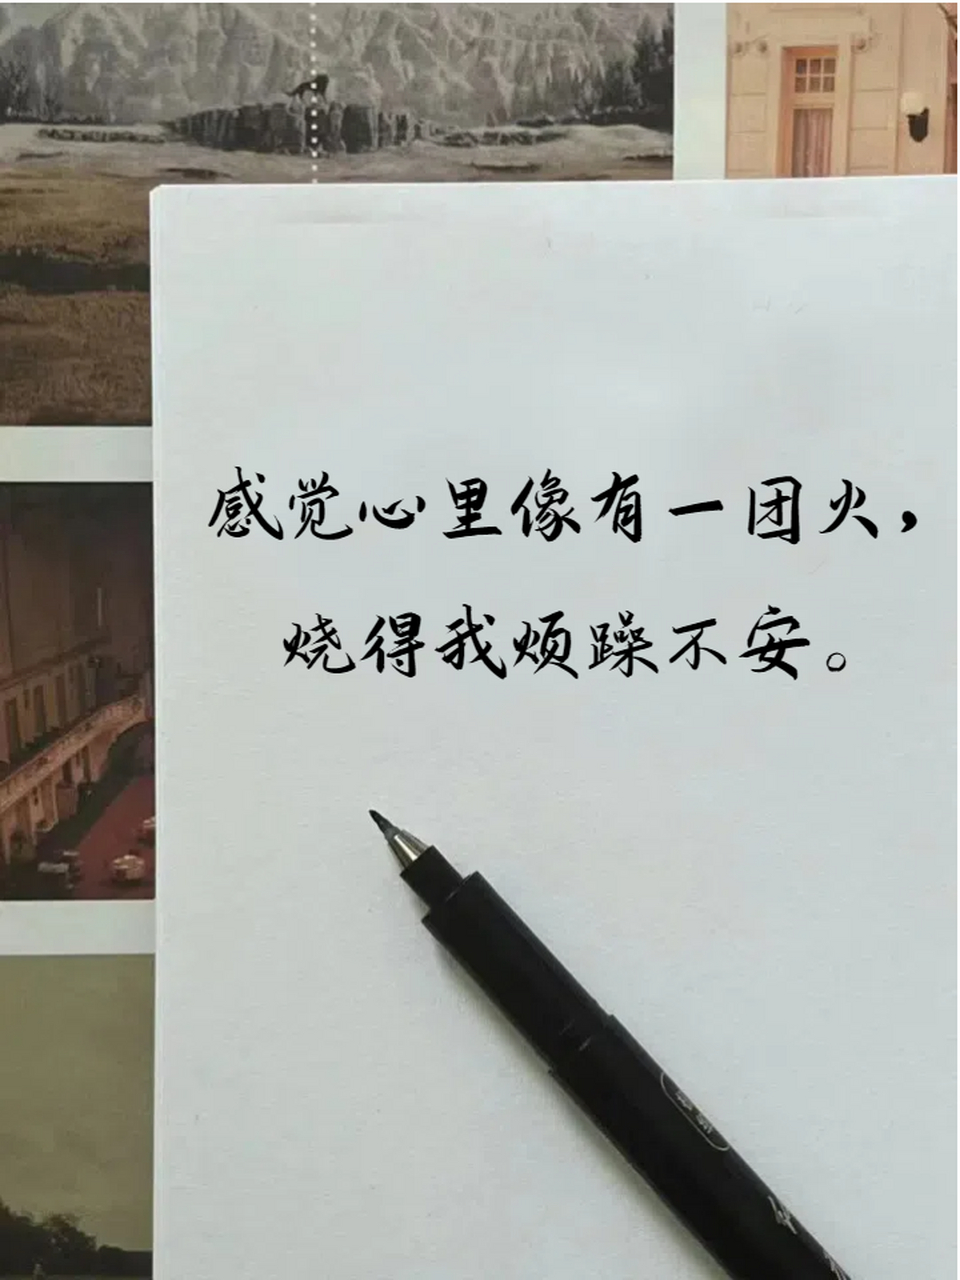 感觉心里像有一团火，
烧得我烦躁不安。